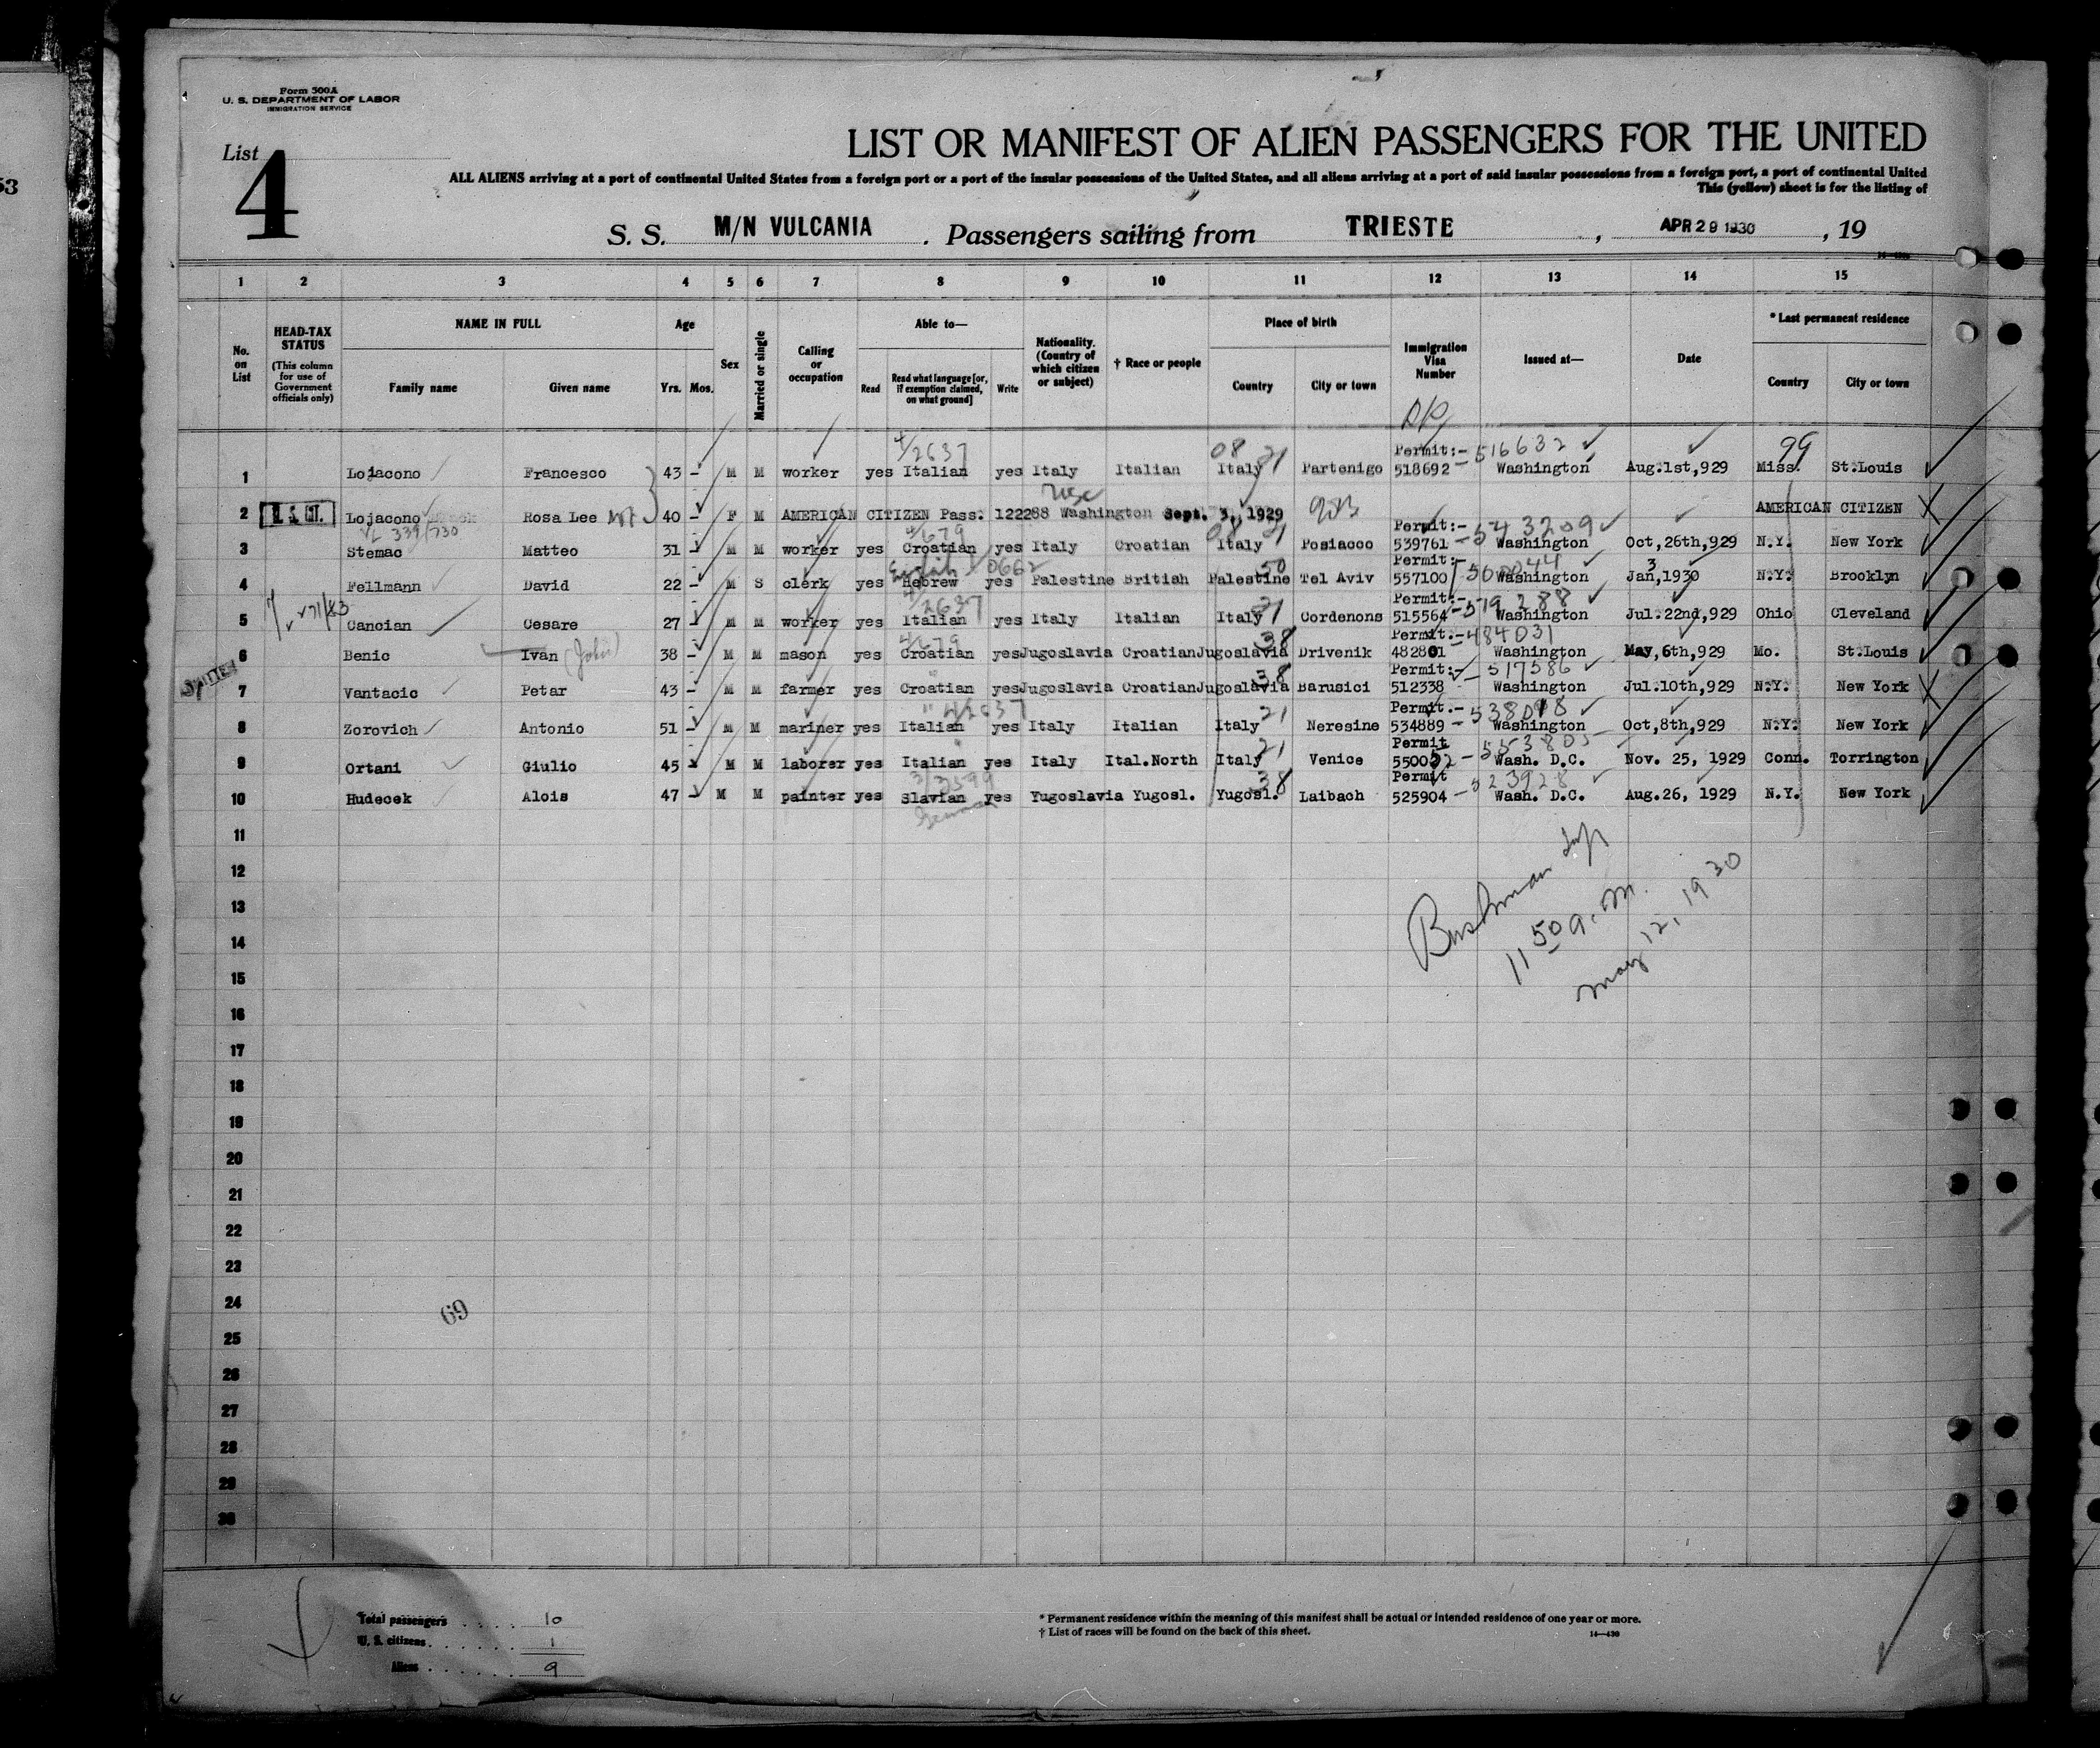 53
Form 500A
U. S. DEPARTMENT OF LABOR
IMMIGRATION SERVICE
List 4
LIST OR MANIFEST OF ALIEN PASSENGERS FOR THE UNITED
ALL ALIENS arriving at a port of continental United States from a foreign port or a port of the insular possessions of the United States, and all aliens arriving at a port of said insular possessions from a foreign port, a port of continental United
This (yellow) sheet is for the listing of
S. S. M/N VULCANIA . Passengers sailing from TRIESTE , APR 29 1930 , 19
1 2 3 4 5 6 7 8 9 10 11 12 13 14 15
No. on List
HEAD-TAX STATUS (This column for use of Government officials only)
NAME IN FULL Family name Given name
Age Yrs. Mos.
Sex
Married or single
Calling or occupation
Able to— Read Read what language [or, if exemption claimed, on what ground] Write
Nationality. (Country of which citizen or subject)
† Race or people
Place of birth Country City or town
Immigration Visa Number
Issued at—
Date
* Last permanent residence Country City or town
4/2637 08 21 Permit:- 516632 99
1 Lojacono Francesco 43 - M M worker yes Italian yes Italy Italian Italy Partenigo 518692 - Washington Aug.1st,929 Miss. St.Louis
USC
2 Lojacono Rosa Lee 40 - F M AMERICAN CITIZEN Pass. 122288 Washington Sept. 3, 1929 AMERICAN CITIZEN
VL 339/730 4/679 21 Permit:- 543209
3 Stemac Matteo 31 - M M worker yes Croatian yes Italy Croatian Italy Posiacco 539761 Washington Oct,26th,929 N.Y. New York
English 0662 50 Permit:- 560044 3
4 Fellmann David 22 - M S clerk yes Hebrew yes Palestine British Palestine Tel Aviv 557100 Washington Jan,1930 N.Y. Brooklyn
4/2637 21 Permit:- 519288
5 Cancian Cesare 27 - M M worker yes Italian yes Italy Italian Italy Cordenons 515564 Washington Jul.22nd,929 Ohio Cleveland
4/679 38 Permit:- 484031
6 Benic Ivan (John) 38 - M M mason yes Croatian yes Jugoslavia Croatian Jugoslavia Drivenik 482801 Washington May,6th,929 Mo. St.Louis
38 Permit:- 517586
7 Vantacic Petar 43 - M M farmer yes Croatian yes Jugoslavia Croatian Jugoslavia Barusici 512338 Washington Jul.10th,929 N.Y. New York
4/2637 21 Permit:- 538098
8 Zorovich Antonio 51 - M M mariner yes Italian yes Italy Italian Italy Neresine 534889 Washington Oct,8th,929 N.Y. New York
21 Permit - 553805
9 Ortani Giulio 45 - M M laborer yes Italian yes Italy Ital.North Italy Venice 550052 Wash. D.C. Nov. 25, 1929 Conn. Torrington
38 Permit - 523928
10 Hudecek Alois 47 - M M painter yes Slavian yes Yugoslavia Yugosl. Yugosl. Laibach 525904 Wash. D.C. Aug.26, 1929 N.Y. New York
German
11
12
13
14
15
16
17
18
19
20
21
22
23
24
25
26
27
28
29
30
Bushman Insp
11 50 a.m.
May 12, 1930
69
Total passengers 10
U. S. citizens 1
Aliens 9
* Permanent residence within the meaning of this manifest shall be actual or intended residence of one year or more.
† List of races will be found on the back of this sheet. 14—430